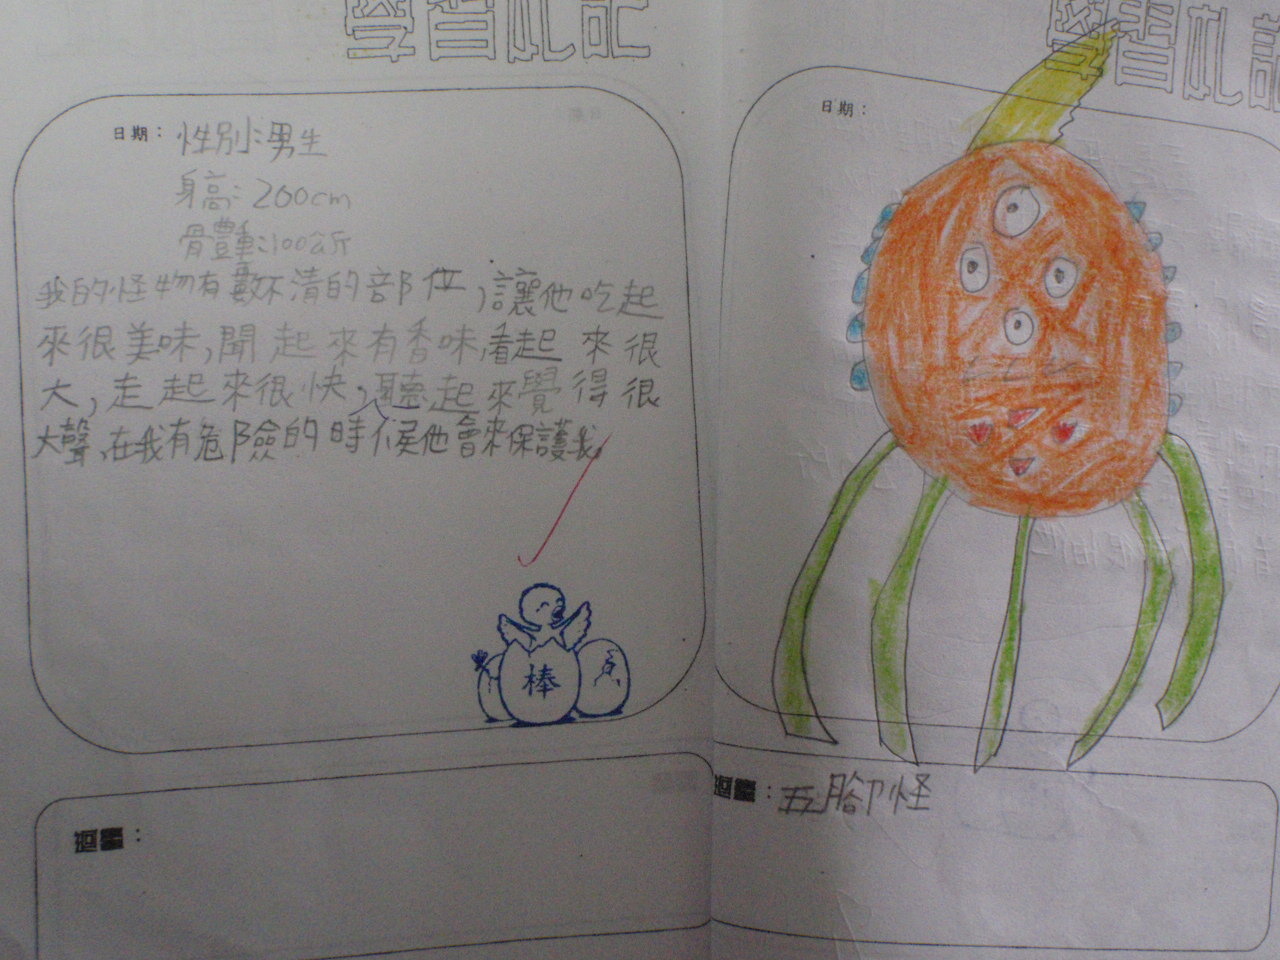 學習札記
日期：性別：男生
身高：200cm
體重：100公斤
我的怪物有數不清的部位，讓他吃起
來很美味，聞起來有香味，看起來很
大，走起來很快，聽起來覺得很
大聲，在我有危險的時候他會來保護我。
棒
迴響：
學習札記
日期：
迴響：五腳怪